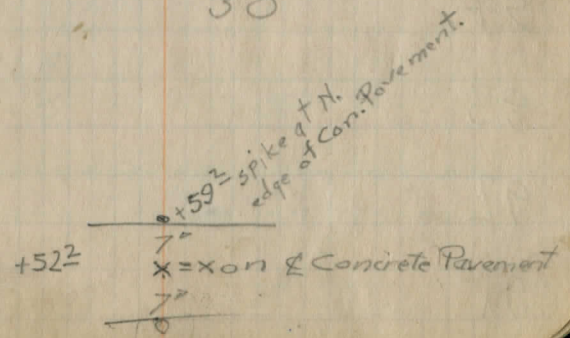 +59² spike at N.
edge of Con. Pavement.
7"
+52² x = x on ℄ Concrete Pavement
7"